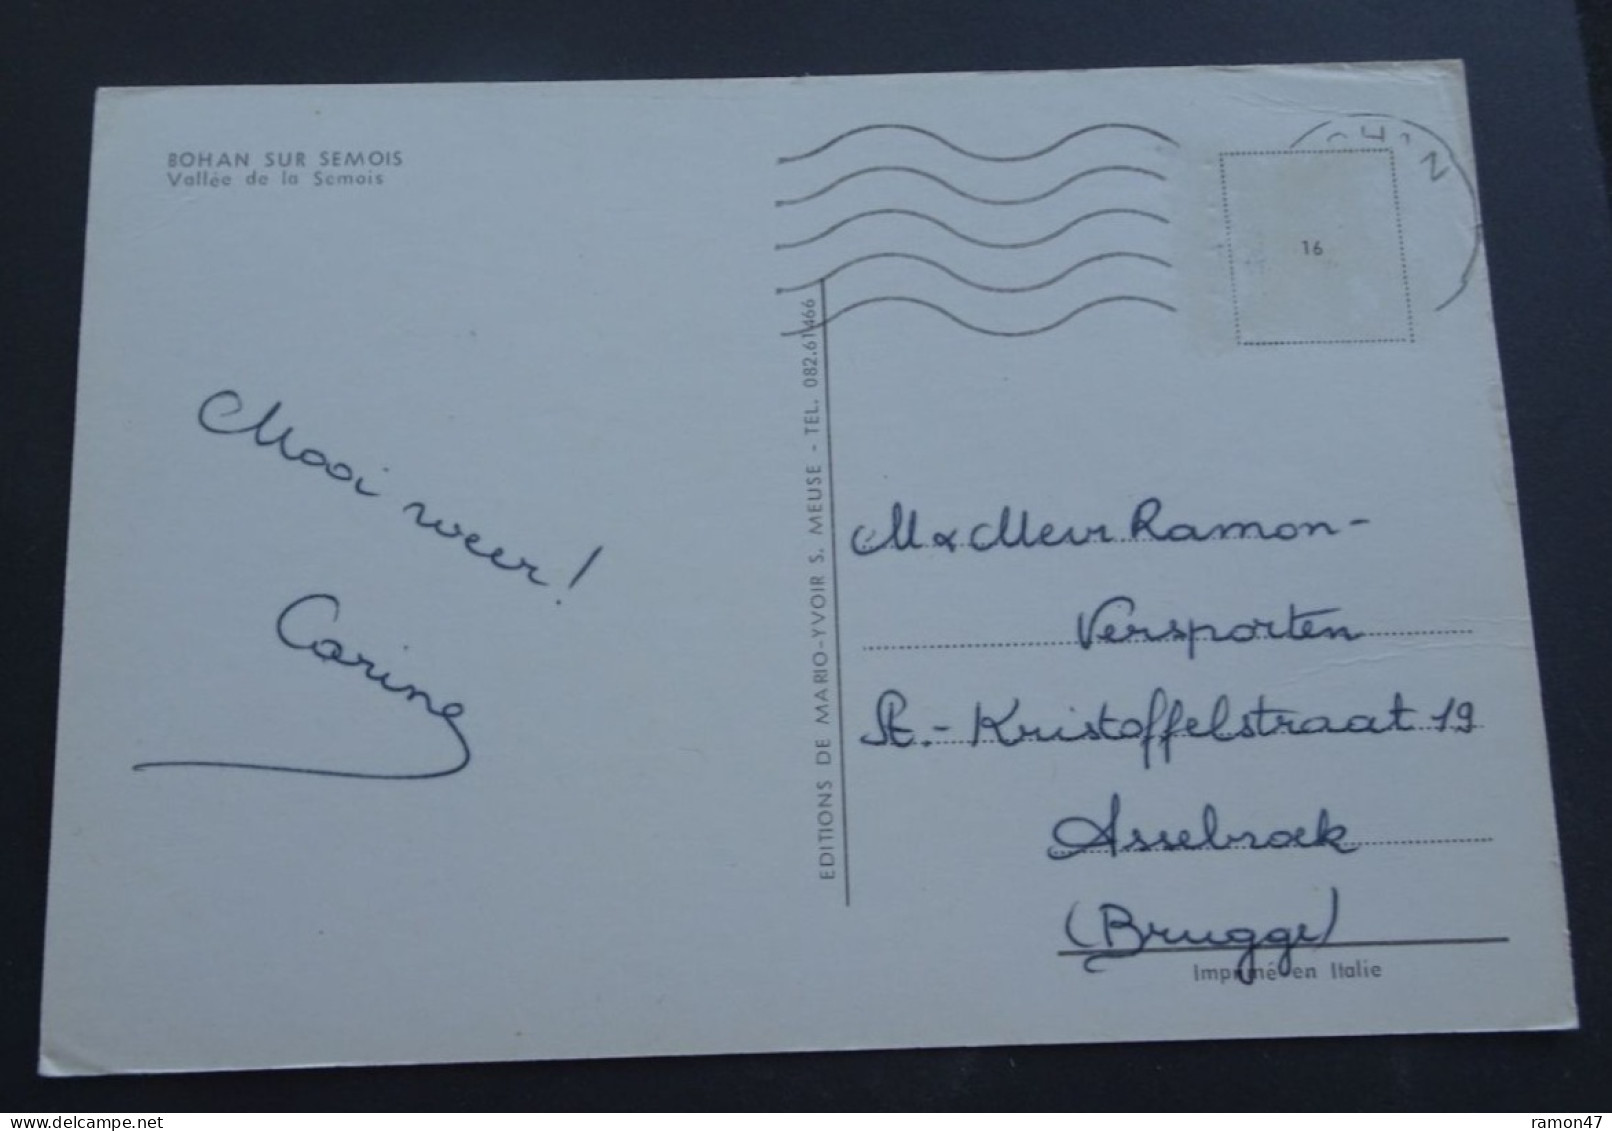 BOHAN SUR SEMOIS
Vallée de la Semois
Mooi weer!
Carine
EDITIONS DE MARIO-YVOIR S. MEUSE - TEL. 082.61466
16
M & Mevr Ramon-
Versporten
St.-Kristoffelstraat 19
Assebroek
(Brugge)
Imprimé en Italie
ramon47